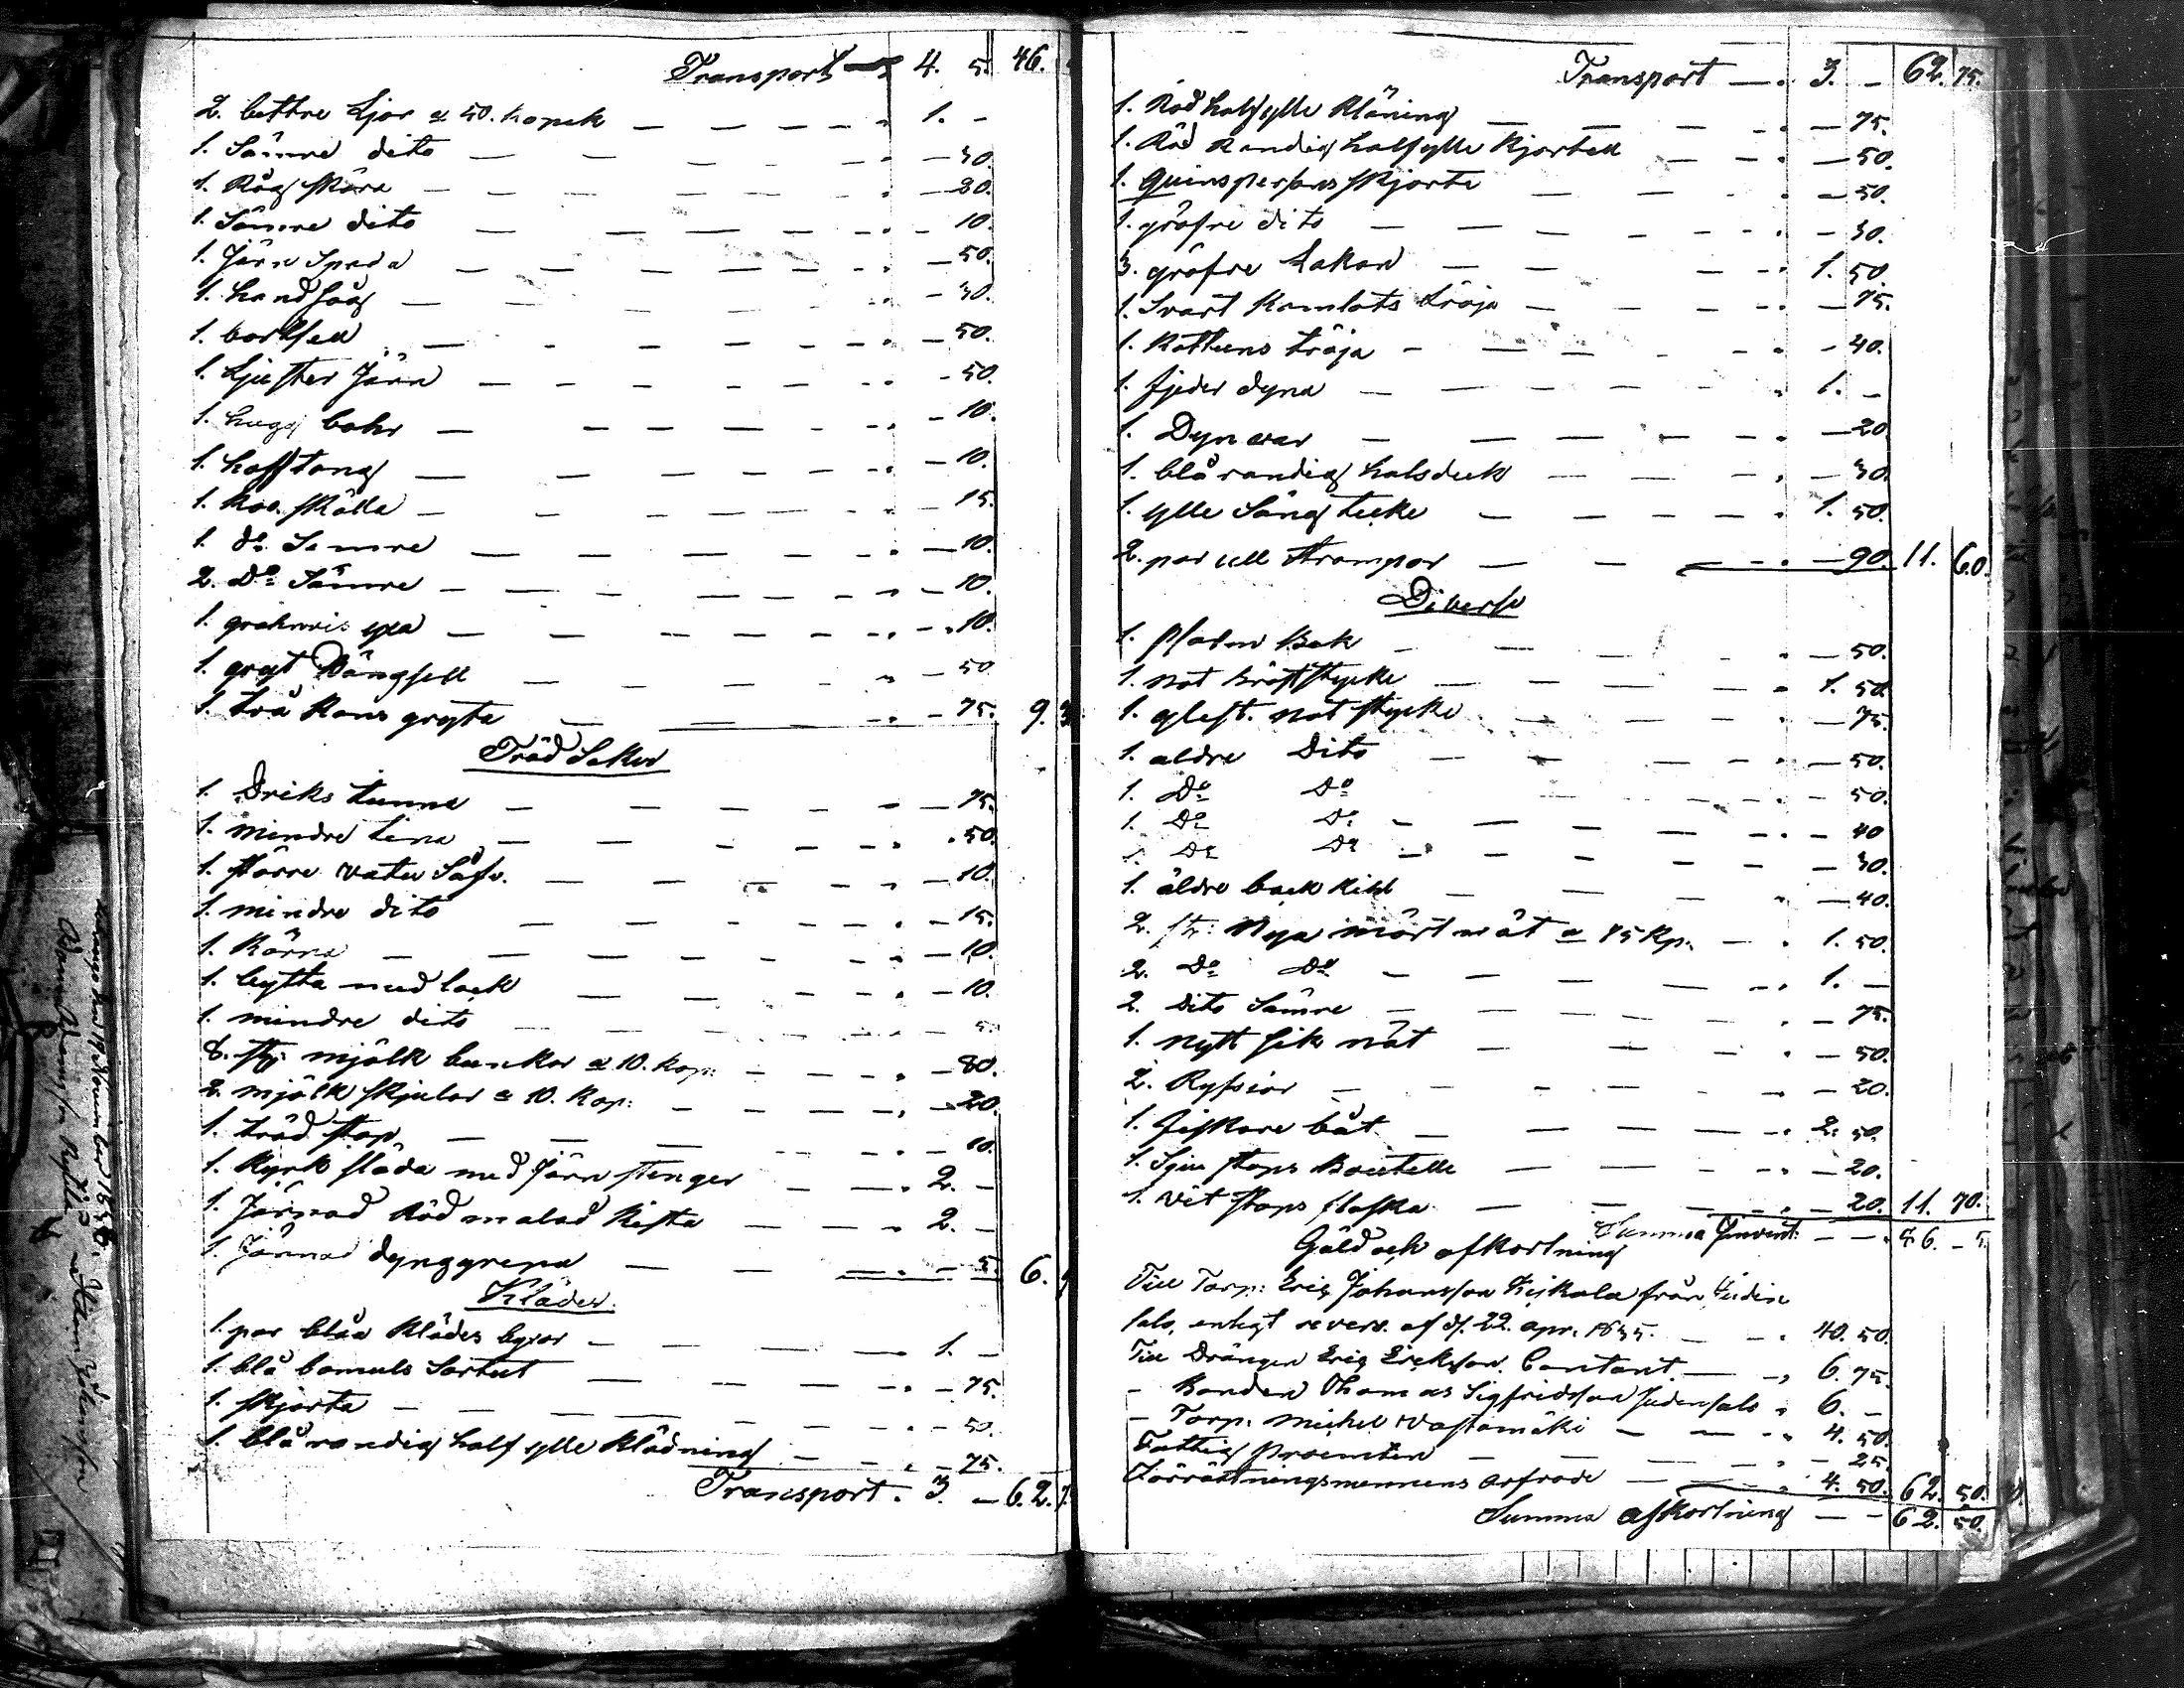 Transport 4. 5. 46.
2. bettre Ljor a 50. kopek — 1. —
1. Sämre dito — 30.
1. Råg skära — 20.
1. Sämre dito — 10.
1. Järn Spada — 50.
1. hand såg — 30.
1. 50.
1. Ljuster Järn — 50.
1. hugg bohr — 10.
1. hoftång — 10.
1. koo skälla — 15.
1. do Semre — 10.
2. Do Sämre — 10.
1. yxa — 10.
1. gryt — 50
1. två kans gryta — 75. 9.
Träd Saker
1. Driks tunna — 75.
1. mindre tina — 50.
1. större vatu Såf. — 10.
1. mindre dito — 15.
1. Kärna — 10.
1. bytta med lock — 10.
1. mindre dito — 5.
8. st: mjölk bunkar a 10. kop: — 80.
2. mjölk skjular a 10. kop: — 20.
1. träd stop — 10.
1. Kyrk släda med Järn stenger — 2. —
1. Järnad Röd malad kista — 2. —
1. Järnad dynggrepa — 5. 6.
Kläder.
1. par blåa klädes byxor — 1. —
1. blå bomuls Sortut — 75.
1. skjorta — 50.
1. blå randig half ylle klädning — 75.
Transport. 3. — 62.
Transport — 3. — 62. 75.
1. Röd half ylle kläning — 75.
1. Röd Randig half ylle kjortell — 50.
1. Quinspersons skjorta — 50.
1. gröfre dito — 30.
3. gröfre Lakan — 1. 50.
1. Svart Kamlots tröja — 75.
1. Kattuns tröja — 40.
1. fjeder dyna — 1. —
1. Dyn war — 20
1. blå randig halsduk — 30
1. ylle Säng tecke — 1. 50.
2. par ull strumpor — 90. 11. 60.
Diverse
1. Psalm Bok — 50.
1. not bröststycke — 1. 50
1. glest. not stycke — 75.
1. aldre Dito — 50.
1. Do Do — 50.
1. Do Do — 40
1. Do Do — 30.
1. äldre — 40.
2. st: Nya mört nät a 75 kp. — 1. 50.
2. Do Do — 1. —
2. Dito Sämre — 75.
1. nytt sik nät — 50.
2. Ryssior — 20.
1. fiskare båt — 2. 50.
1. Sju stops Boutelle — 20.
1. vit stops flaska — 20. 11. 70.
Summa Invent: — 86. — 5.
Gäld och afkortning
Till Torp: Eric Johansson från
salo, enligt revers. af d. 22. apr. 1835. — 40. 50.
Till Drängen Eric Ericksson Contant. — 6. 75.
— Bonden Thomas Sigfridsson Judensalo 6. —
— Torp: Michel Vastamäki — 4. 50.
Fattig procenten — 25.
Förrättningsmennens arfvode — 4. 50. 62. 50.
Summa afkortning — 62. 50.